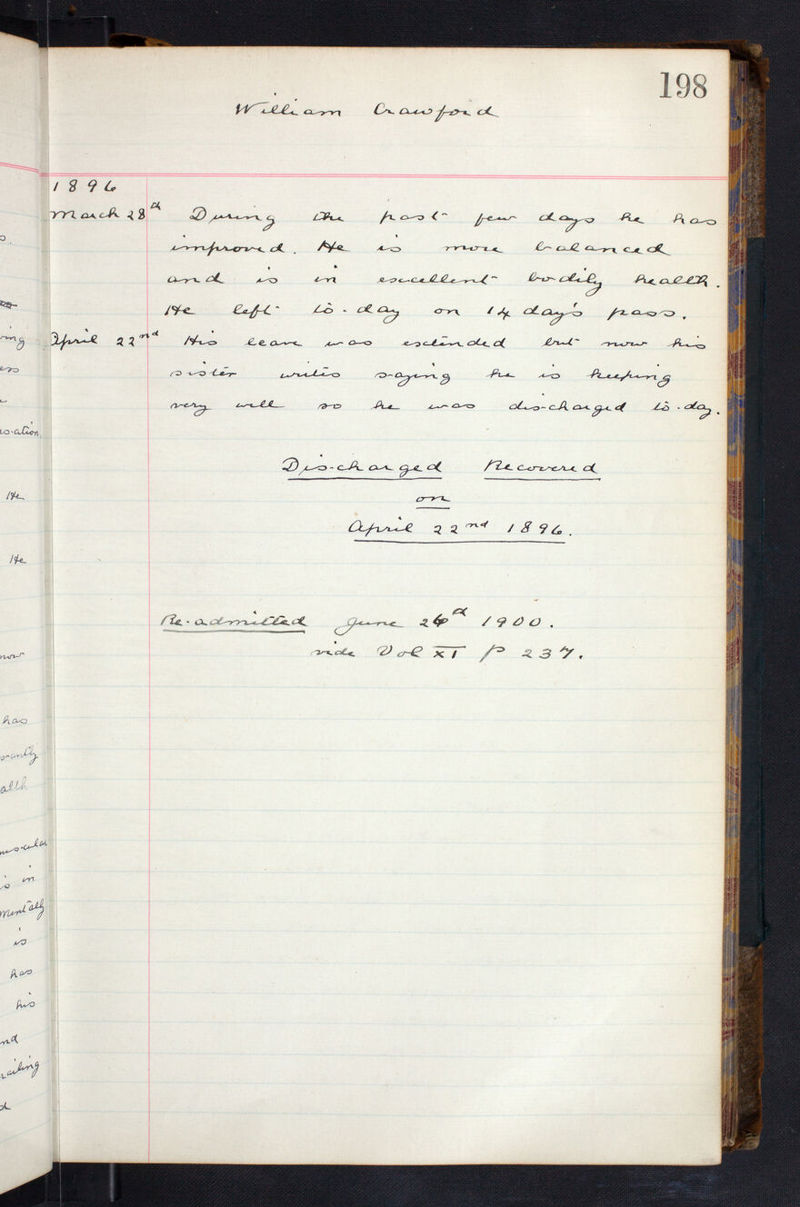 198
William Crawford
1896
March 28th During the past few days he has
improved. He is more balanced
and is in excellent bodily health.
He left to-day on 14 day's pass.
April 22nd His leave was extended but now his
sister writes saying he is keeping
very well so he was discharged to-day.
Discharged Recovered
on
April 22nd 1896.
Re-admitted June 26th 1900.
vide Vol XI p 237.
ing
He
He
now
has
alth
is in
mentally
is
has
his